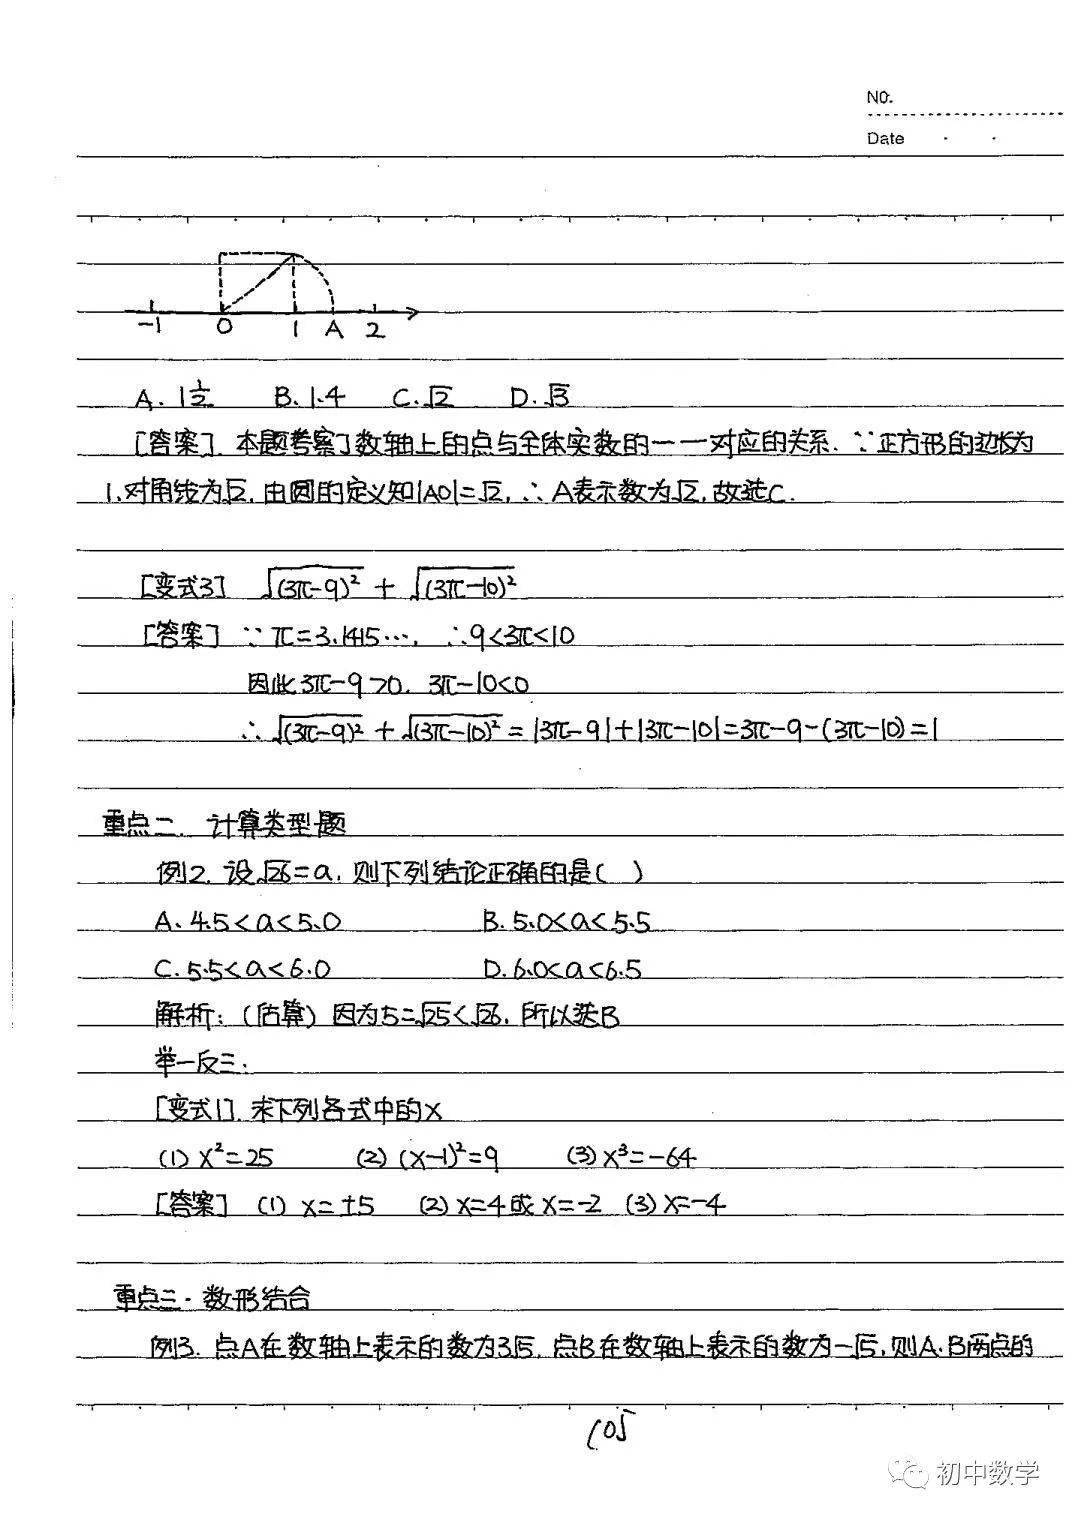 NO.
Date
-1 0 1 A 2
A. 1½ B. 1.4 C. √2 D. √3
[答案] 本题考察了数轴上的点与全体实数的一一对应的关系. ∵正方形的边长为
1.对角线为√2, 由圆的定义知|AO|=√2, ∴A表示数为√2, 故选C.
[变式3] √(3π-9)² + √(3π-10)²
[答案] ∵π=3.1415…, ∴9<3π<10
因此3π-9>0. 3π-10<0
∴√(3π-9)² + √(3π-10)² = |3π-9|+|3π-10|=3π-9-(3π-10)=1
重点二. 计算类型题
例2. 设√26=a, 则下列结论正确的是( )
A. 4.5<a<5.0 B. 5.0<a<5.5
C. 5.5<a<6.0 D. 6.0<a<6.5
解析:(估算)因为5=√25<√26, 所以选B
举一反三:
[变式1]. 求下列各式中的x
(1) x²=25 (2) (x-1)²=9 (3) x³=-64
[答案] (1) x=±5 (2) x=4或x=-2 (3) x=-4
重点三.数形结合
例3. 点A在数轴上表示的数为3√5, 点B在数轴上表示的数为-√5, 则A.B两点的
105
初中数学